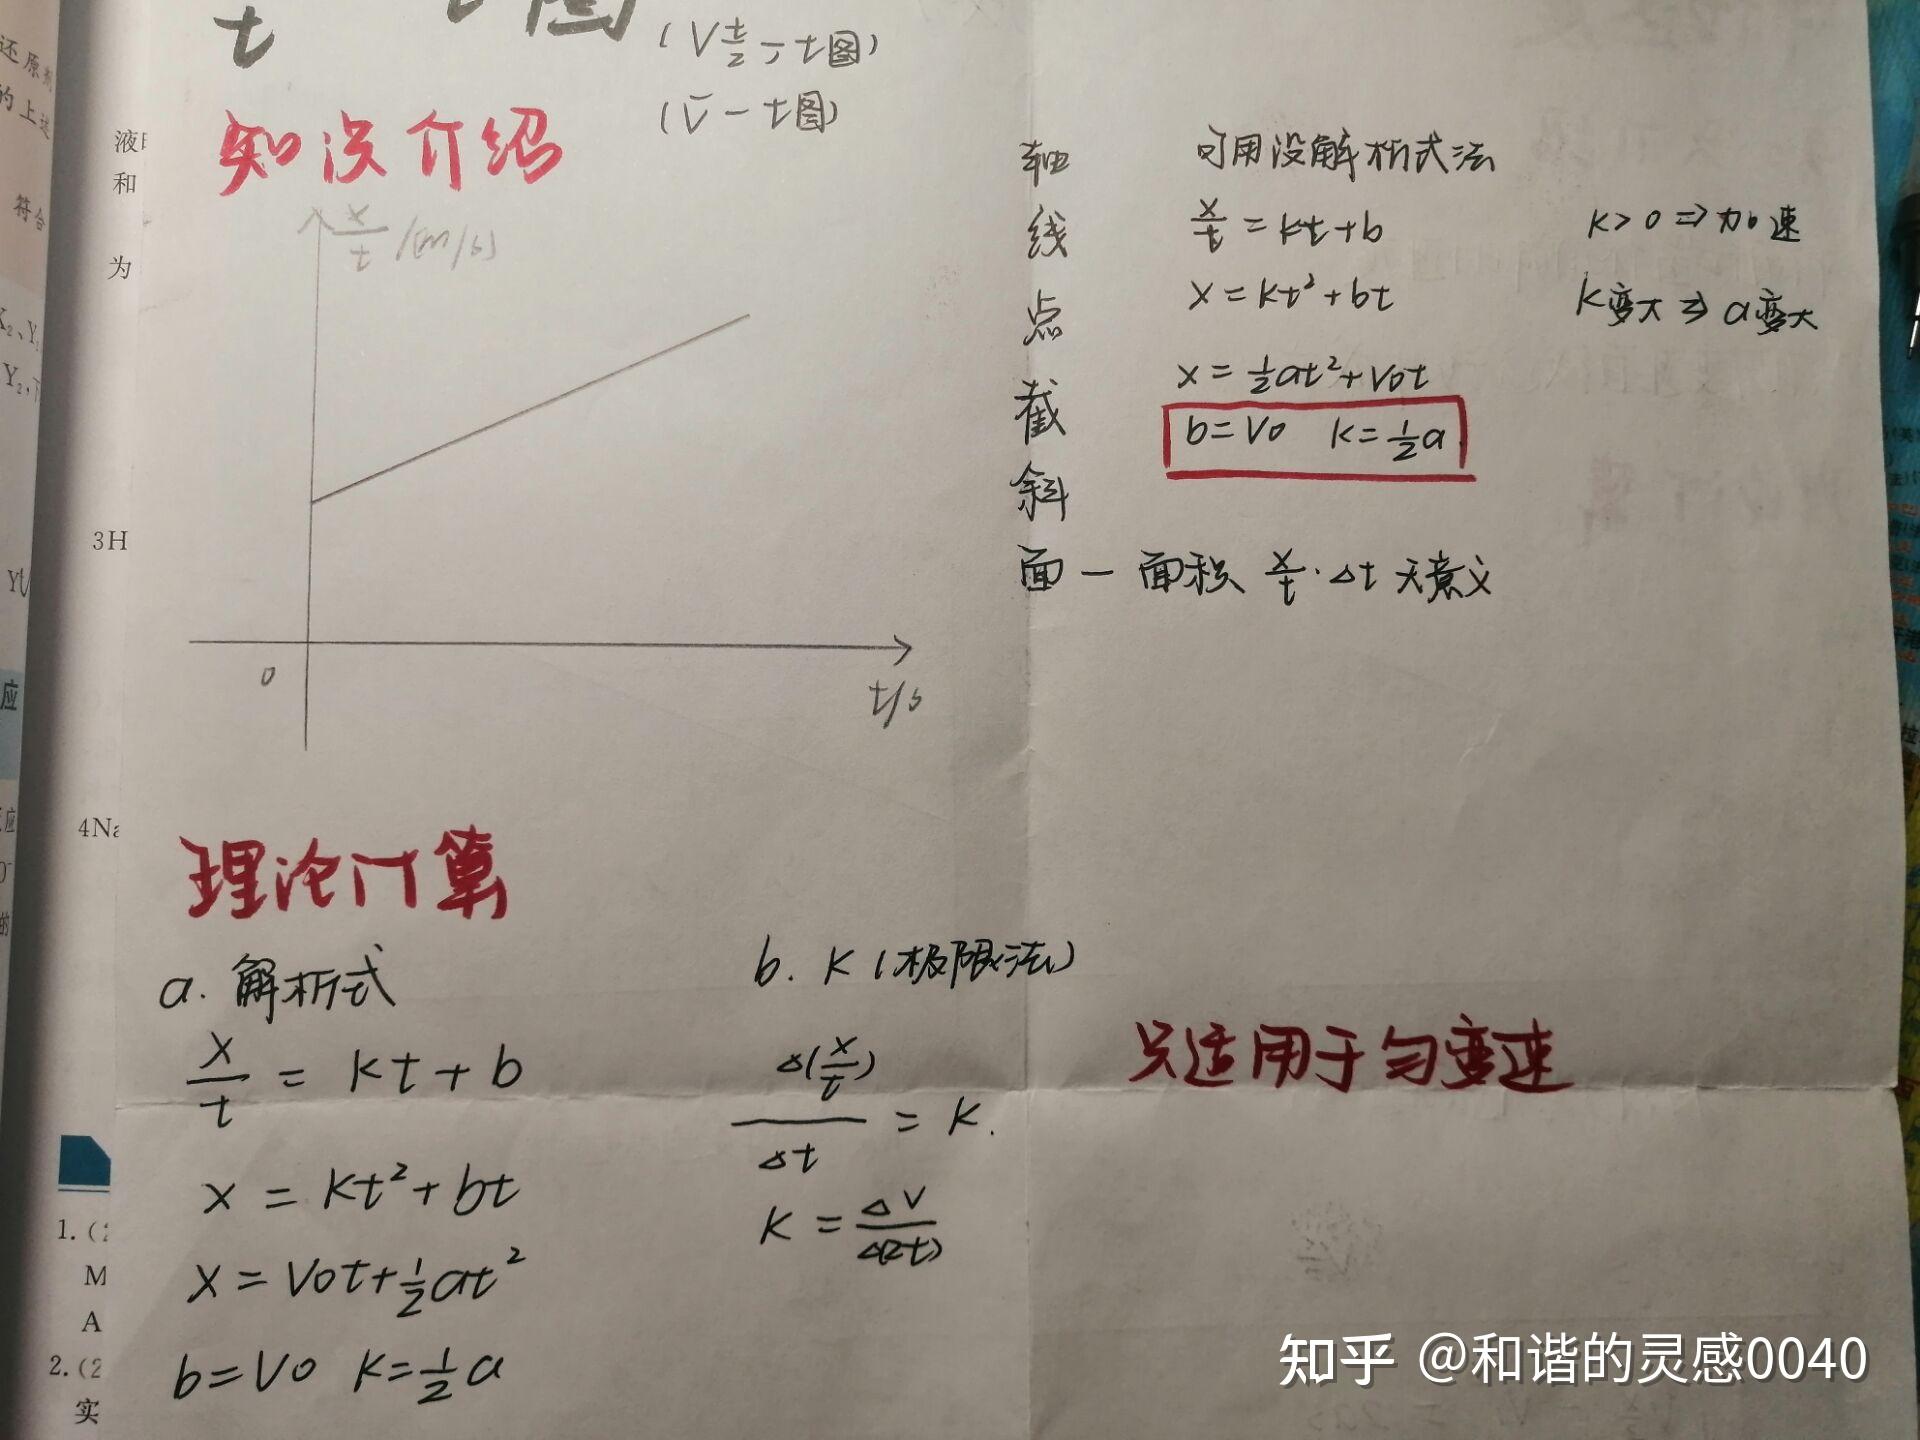 t t图
(V t/2 - t图)
(V̄ - t图)
知识介绍
x/t /(m/s)
0
t/s
轴
线
点
截
斜
面 — 面积 x/t · Δt 无意义
可用设解析式法
x/t = kt + b
x = kt² + bt
x = ½at² + V0t
b = V0 k = ½a
k > 0 => 加速
k变大 => a变大
理论计算
a. 解析式
x/t = kt + b
x = kt² + bt
x = V0t + ½at²
b = V0 k = ½a
b. k (极限法)
Δ(x/t)/Δt = k.
k = ΔV/Δ(2t)
只适用于匀变速
还原
的上述
符合
液
和
为
3H
Yt/
应
4Na
1. (2
M
A
2. (2
实
知乎 @和谐的灵感0040